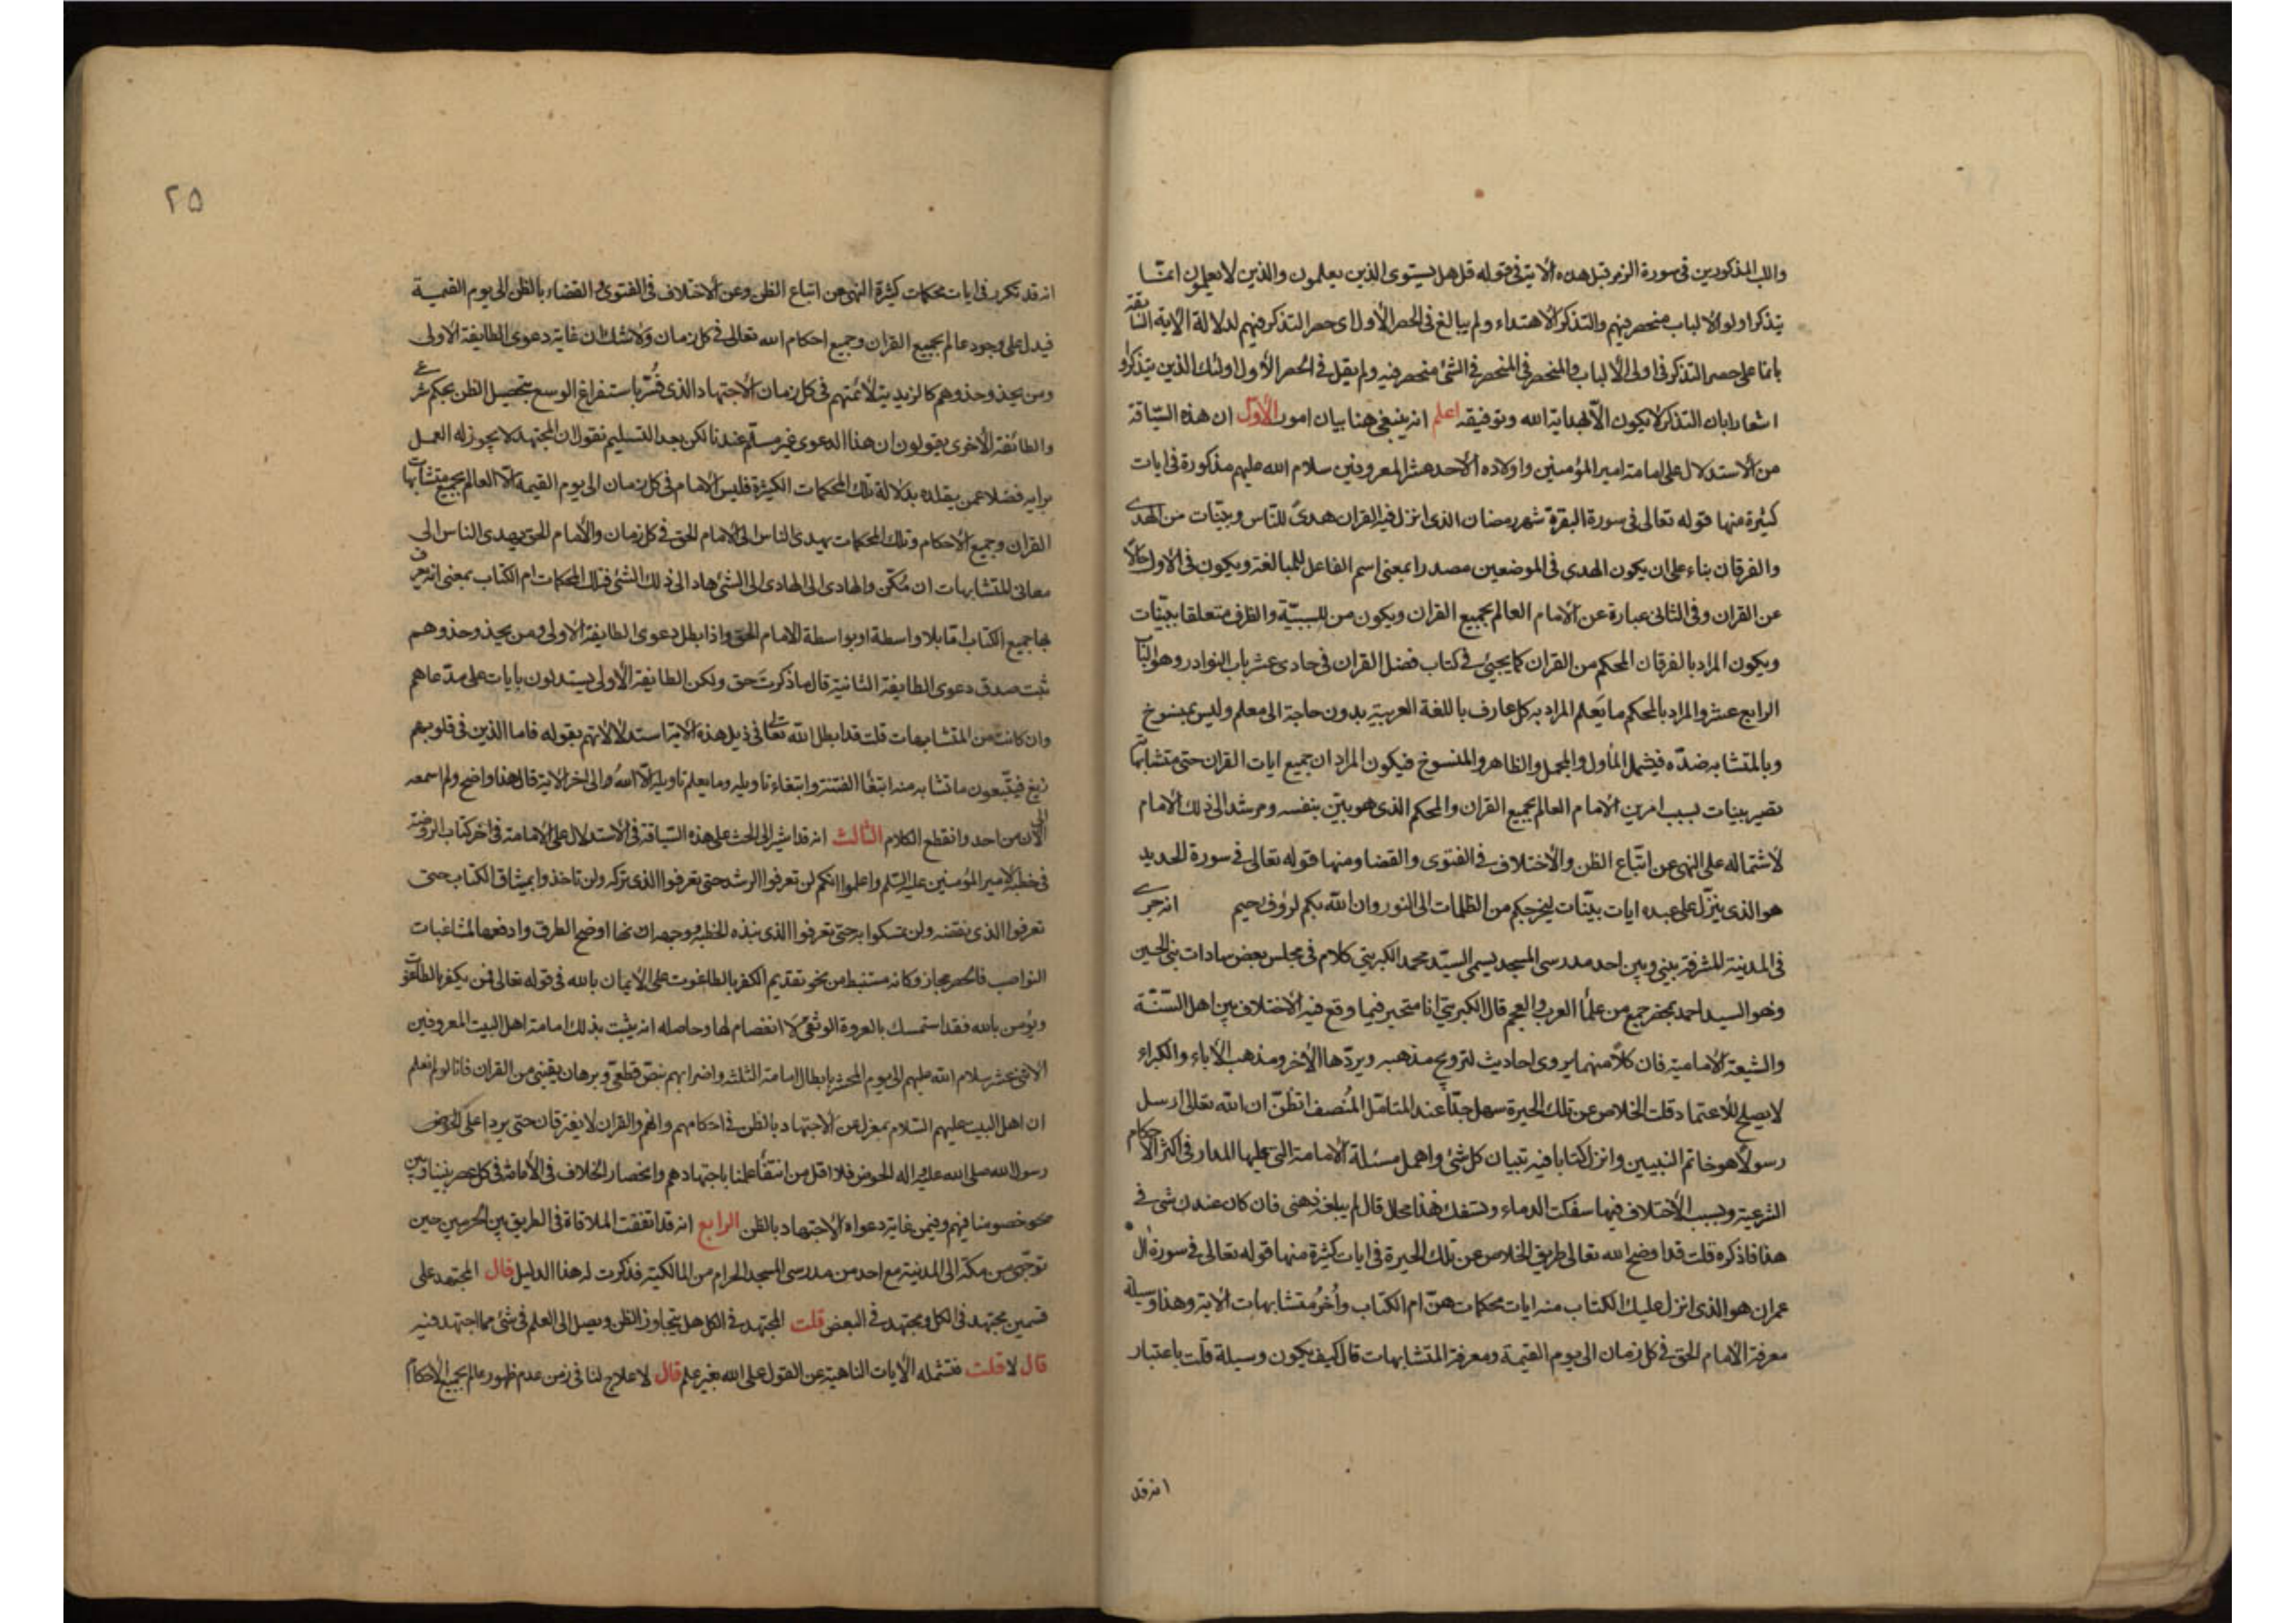 واللب المذكورين في سورة الزمر قبل هذه الاية في قوله قل هل يستوي الذين يعلمون والذين لا يعلمون انما
يتذكر اولوا الالباب منحصر فيهم والتذكر الاهتداء ولم يبالغ في الحصر الأول اي حصر التذكر فيهم لدلالة الاية السابقة
على حصر التذكر في اولي الألباب والمنحصر في المنحصر في الشئ منحصر فيه ولم يقل في الحصر الأول اولئك الذين يتذكروا
اشعارا بان التذكر لا يكون الا بهداية الله وتوفيقه اعلم انه ينبغي هنا بيان امور الأول ان هذه السياقة
من الاستدلال على امامة امير المؤمنين واولاده الأحد عشر المعروفين سلام الله عليهم مذكورة في ايات
كثيرة منها قوله تعالى في سورة البقرة شهر رمضان الذي انزل فيه القران هدى للناس وبينات من الهدى
والفرقان بناء على ان يكون الهدى في الموضعين مصدرا بمعنى اسم الفاعل للمبالغة ويكون في الاول حالا
عن القران وفي الثاني عبارة عن الامام العالم بجميع القران ويكون من للسببية والظرف متعلقا ببينات
ويكون المراد بالفرقان المحكم من القران كما يجئ في كتاب فضل القران في حادي عشر باب النوادر وهو الباب
الرابع عشر والمراد بالمحكم ما يعلم المراد به كل عارف باللغة العربية بدون حاجة الى معلم وليس بمنسوخ
وبالمتشابه ضده فيشمل المأول والمجمل والظاهر والمنسوخ فيكون المراد ان جميع ايات القران حتى متشابهاتها
تصير بينات بسبب امرين الامام العالم بجميع القران والمحكم الذي هو بين بنفسه ومرشد الى ذلك الامام
لاشتماله على النهي عن اتباع الظن والاختلاف في الفتوى والقضا ومنها قوله تعالى في سورة الحديد
هو الذي ينزل على عبده ايات بينات ليخرجكم من الظلمات الى النور وان الله بكم لرؤف رحيم انه جرى
في المدينة المشرفة بيني وبين احد مدرسي المسجد يسمى السيد محمد الكبريتي كلام في مجلس بعض سادات بني الحسين
وهو السيد احمد بمحضر جمع من علماء العرب والعجم قال الكبريتي انا متحير فيما وقع فيه الاختلاف بين اهل السنة
والشيعة الامامية فان كلا منهما يروي احاديث لترويح مذهبه ويردها الآخر ومذهب الآباء والكبراء
لا يصلح للاعتماد قلت الخلاص عن تلك الحيرة سهل جدا عند المتامل المنصف اتظن ان الله تعالى ارسل
رسولا هو خاتم النبيين وانزل كتابا فيه تبيان كل شئ واهمل مسئلة الامامة التي عليها المدار في اكثر الاحكام
الشرعية وبسبب الاختلاف فيها سفكت الدماء وتسفك هذا محال قال لم يبلغه ذهني فان كان عندك شئ في
هذا فاذكره قلت قد اوضح الله تعالى طريق الخلاص عن تلك الحيرة في ايات كثيرة منها قوله تعالى في سورة ال
عمران هو الذي انزل عليك الكتاب منه ايات محكمات هن ام الكتاب وأخر متشابهات الاية وهذا وسيلة
معرفة الامام الحق في كل زمان الى يوم القيمة ومعرفة المتشابهات قال كيف يكون وسيلة قلت باعتبار
انه قد
٢٥
انه قد تكرر في ايات محكمات كثيرة النهي عن اتباع الظن وعن الاختلاف في الفتوى والقضاء بالظن الى يوم القيمة
فيدل على وجود عالم بجميع القران وجميع احكام الله تعالى في كل زمان ولا شك ان غاية دعوى الطايفة الاولى
ومن يحذو حذوهم كالزيدية لائمتهم في كل زمان الاجتهاد الذي فسر باستفراغ الوسع بتحصيل الظن بحكم شرعي
والطائفة الأخرى يقولون ان هذا الدعوى غير مسلم عندنا لكن بعد التسليم نقول ان المجتهد لا يجوز له العمل
برايه فضلا عمن يقلده بدلالة تلك المحكمات الكثيرة فليس الامام في كل زمان الى يوم القيمة الا العالم بجميع متشابهات
القران وجميع الاحكام وتلك المحكمات يهدي الناس الى الامام الحق في كل زمان والامام الحق يهدي الناس الى
معاني المتشابهات ان مكن والهادي الى الهادي الى الشئ هاد الى ذلك الشئ فتلك المحكمات ام الكتاب بمعنى انه يعرف
بها جميع الكتاب اما بلا واسطة او بواسطة الامام الحق واذا بطل دعوى الطايفة الاولى ومن يحذو حذوهم
ثبت صدق دعوى الطايفة الثانية قال ما ذكرت حق ولكن الطايفة الأولى يستدلون بايات على مدعاهم
وان كانت من المتشابهات قلت قد ابطل الله تعالى في ذيل هذه الاية استدلالاتهم بقوله فاما الذين في قلوبهم
زيغ فيتبعون ما تشابه منه ابتغاء الفتنة وابتغاء تاويله وما يعلم تاويله الا الله الى اخر الاية قال هذا واضح ولم اسمعه
الى الآن من احد وانقطع الكلام الثالث انه قد اشير الى الحث على هذه السياقة في الاستدلال على الامامة في اخر كتاب الروضة
في خطبة لامير المؤمنين عليه السلم واعلموا انكم لن تعرفوا الرشد حتى تعرفوا الذي تركه ولن تاخذوا بميثاق الكتاب حتى
تعرفوا الذي نقضه ولن تمسكوا به حتى تعرفوا الذي نبذه الخطبة ووجه ذلك انها اوضح الطرق وادفعها لمشاغبات
النواصب فالحصر مجاز وكانه مستنبط من نحو تقديم الكفر بالطاغوت على الايمان بالله في قوله تعالى فمن يكفر بالطاغوت
ويؤمن بالله فقد استمسك بالعروة الوثقى لا انفصام لها وحاصله انه يثبت بذلك امامة اهل البيت المعروفين
الاثني عشر سلام الله عليهم الى يوم المحشر بابطال امامة الثلثة واضرابهم بنص قطعي وبرهان يقيني من القران فانا لو لم نعلم
ان اهل البيت عليهم السلام بمعزل عن الاجتهاد بالظن في احكامهم وانهم والقران لا يفترقان حتى يردا على الحوض
رسول الله صلى الله عليه واله الحوض فلا اقل من انتفاء علمنا باجتهادهم وانحصار الخلاف في الأمامة في كل عصر بيننا وبين
خصومنا فيهم وفيمن غاية دعواه الاجتهاد بالظن الرابع انه قد اتفقت الملاقاة في الطريق بين الحرمين حين
توجهي من مكة الى المدينة مع احد من مدرسي المسجد الحرام من المالكية فذكرت له هذا الدليل قال المجتهد على
قسمين مجتهد في الكل ومجتهد في البعض قلت المجتهد في الكل هل يتجاوز الظن ويصل الى العلم في شئ مما اجتهد فيه
قال لا قلت فتشمله الآيات الناهية عن القول على الله بغير علم قال لا علاج لنا في زمن عدم ظهور عالم بجميع الاحكام